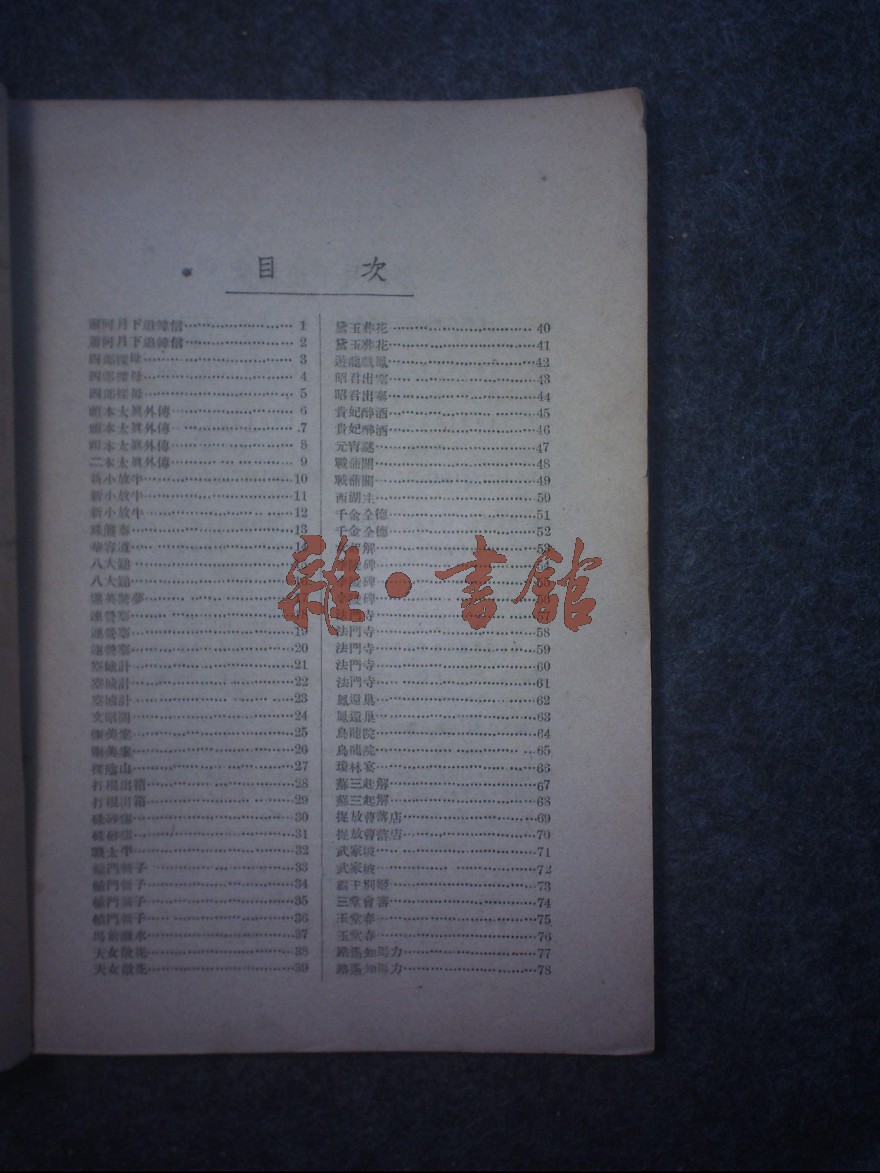 目 次
蕭何月下追韓信 1
蕭何月下追韓信 2
四郎探母 3
四郎探母 4
四郎探母 5
頭本太眞外傳 6
頭本太眞外傳 7
頭本太眞外傳 8
二本太眞外傳 9
新小放牛 10
新小放牛 11
新小放牛 12
珠簾寨 13
華容道 14
八大鎚
八大鎚
連營寨
連營寨 19
連營寨 20
空城計 21
空城計 22
空城計 23
文昭關 24
26
探陰山 27
打棍出箱 28
打棍出箱 29
硃砂痣 30
硃砂痣 31
戰太平 32
轅門斬子 33
轅門斬子 34
轅門斬子 35
轅門斬子 36
馬前潑水 37
天女散花 38
天女散花 39
黛玉葬花 40
黛玉葬花 41
遊龍戲鳳 42
昭君出塞 43
昭君出塞 44
貴妃醉酒 45
貴妃醉酒 46
元宵謎 47
戰蒲關 48
戰蒲關 49
西湖主 50
千金全德 51
千金全德 52
解 53
碑
碑
碑
寺 57
法門寺 58
法門寺 59
法門寺 60
法門寺 61
鳳還巢 62
鳳還巢 63
烏龍院 64
烏龍院 65
瓊林宴 66
蘇三起解 67
蘇三起解 68
捉放曹落店 69
捉放曹落店 70
武家坡 71
武家坡 72
霸王別姬 73
三堂會審 74
玉堂春 75
玉堂春 76
路遙知馬力 77
路遙知馬力 78
雜·書館